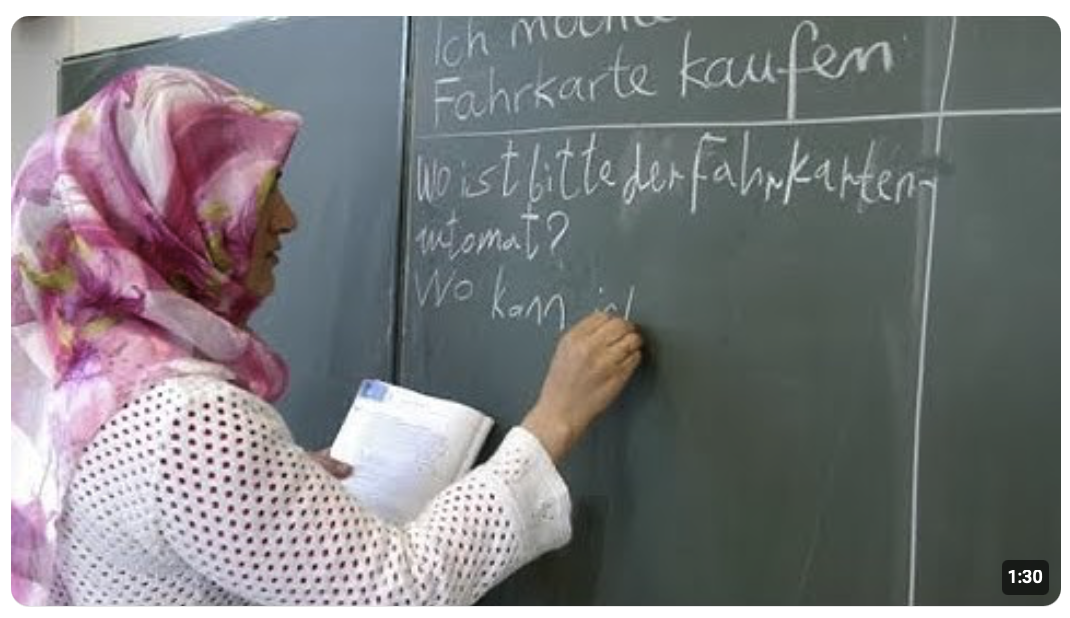 Ich möchte
Fahrkarte kaufen
Wo ist bitte der Fahrkarten-
automat?
Wo kann ich
1:30